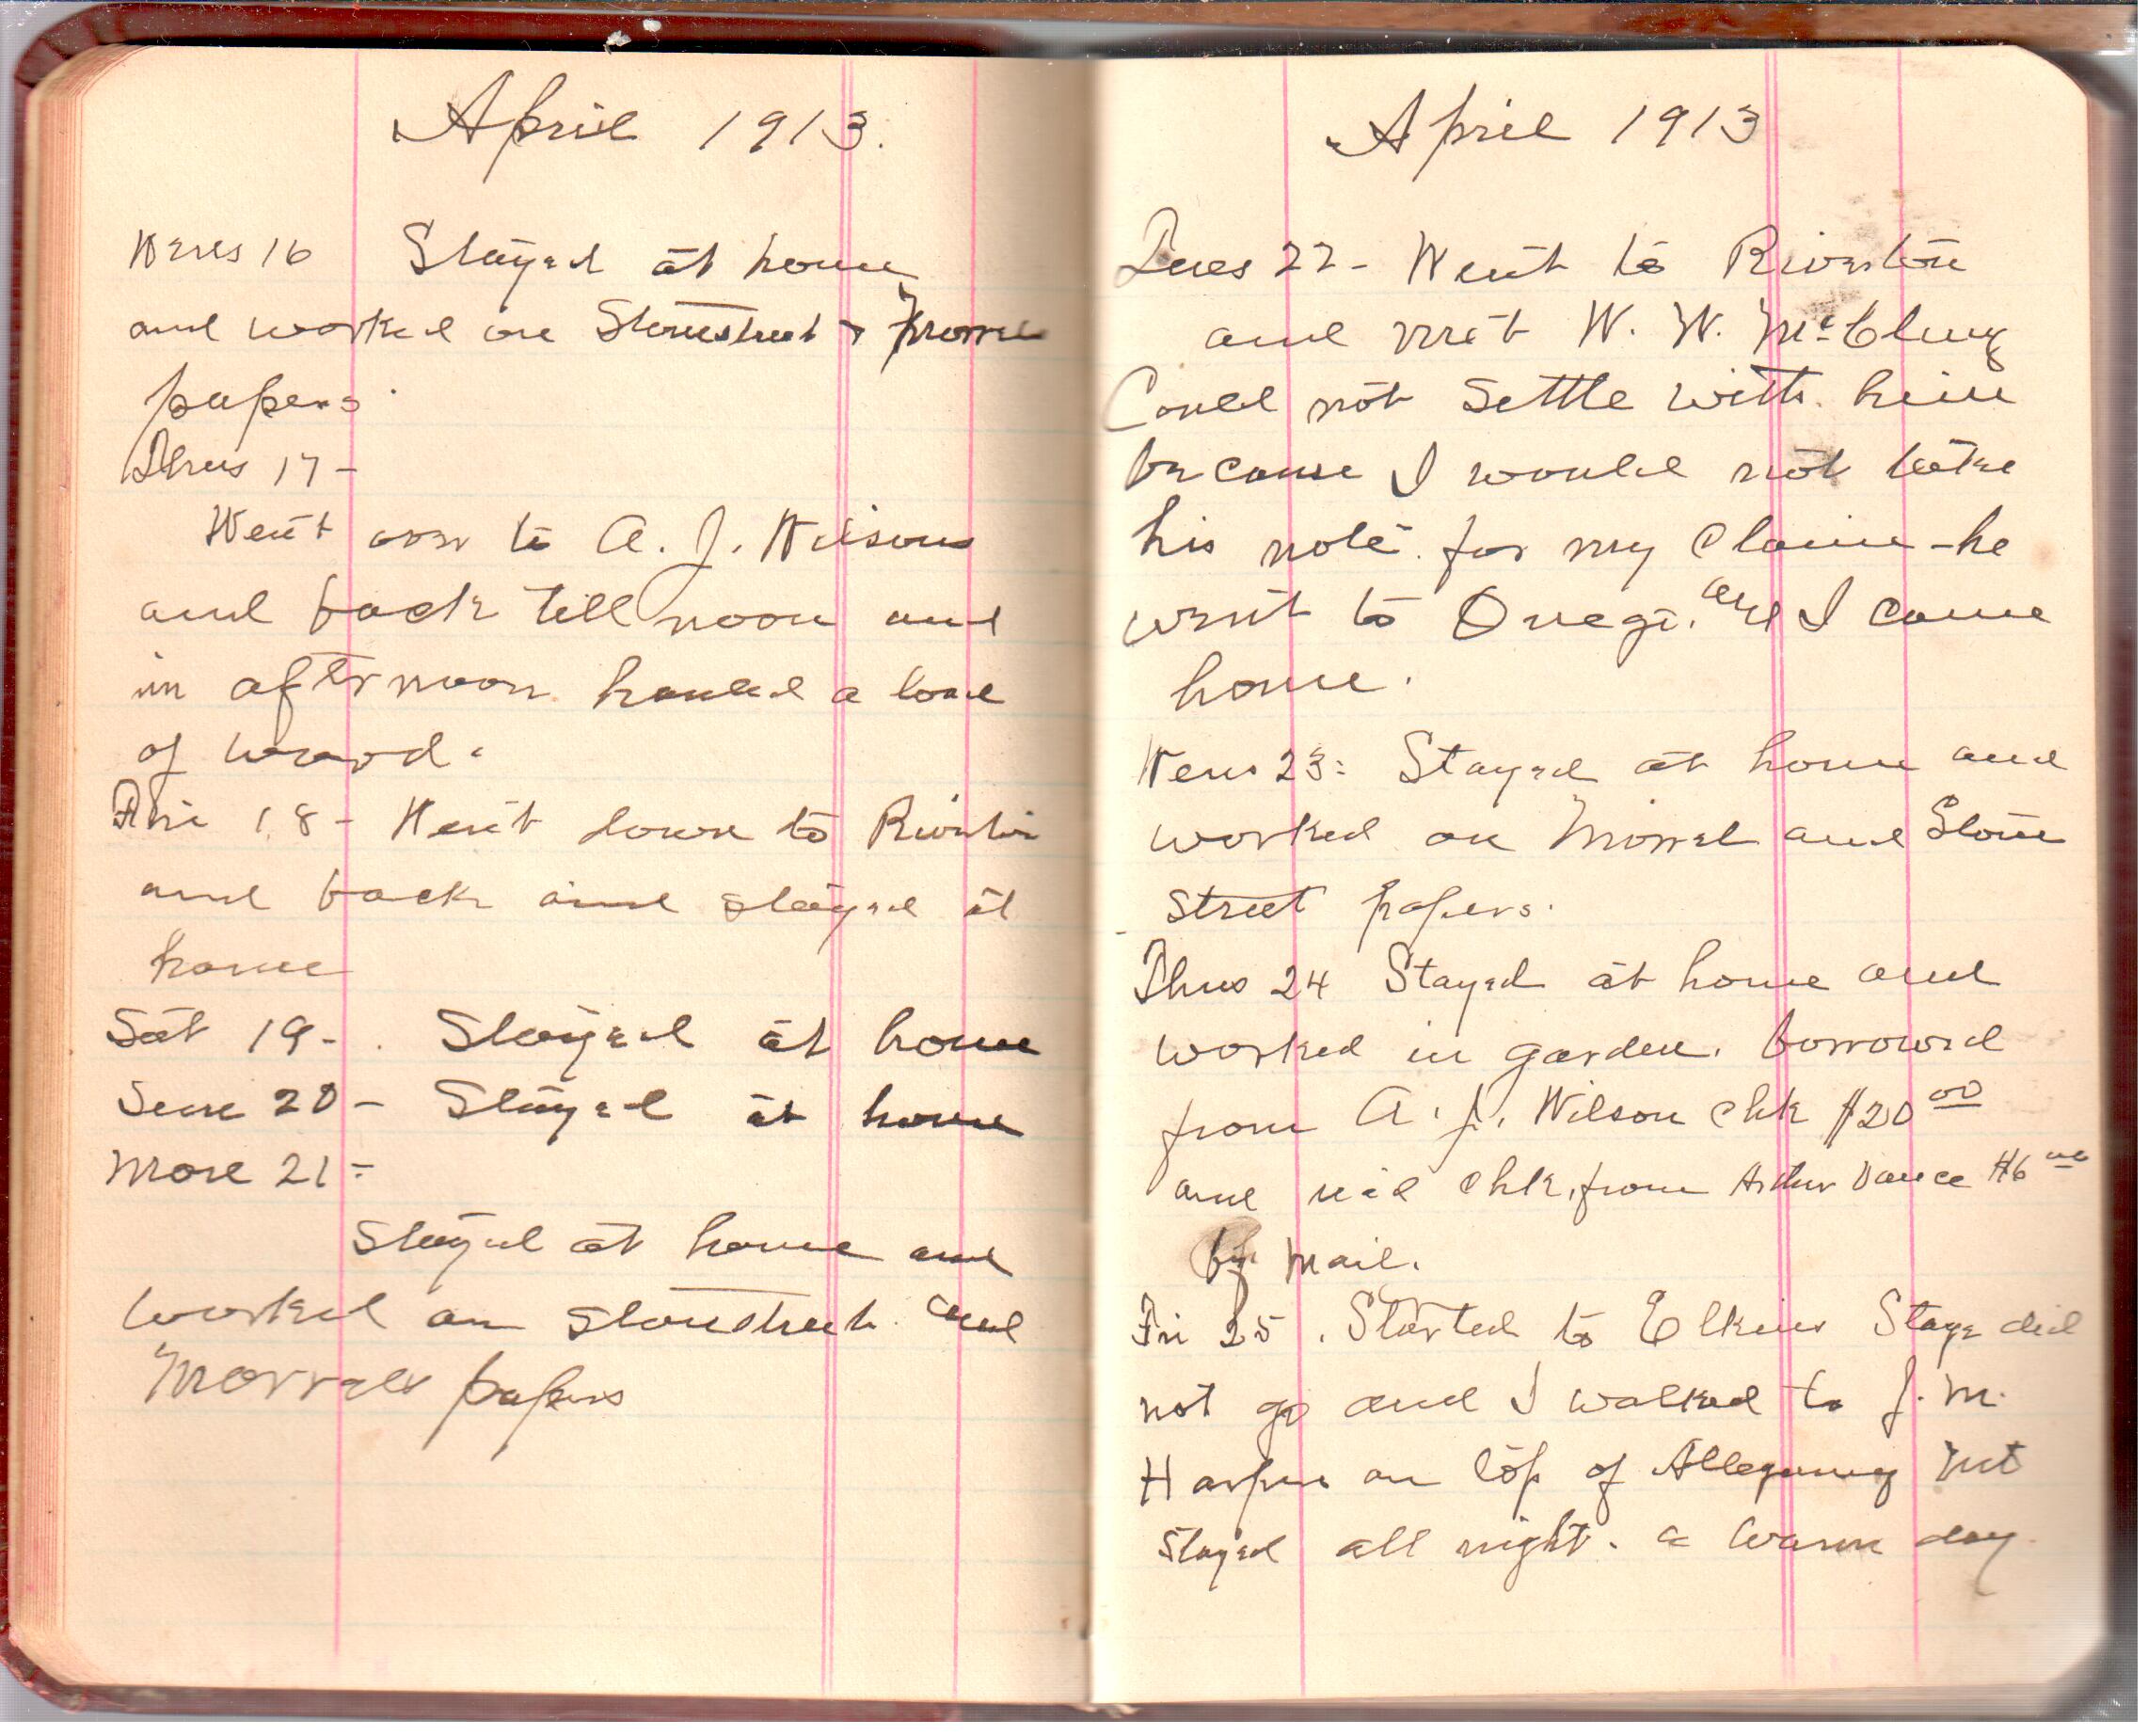 April 1913.
Wens 16 Stayed at home
and worked on Stonestreet & Morrel
papers.
Thus 17-
Went over to A. J. Wilsons
and back till noon and
in afternoon hauled a load
of wood.
Fri 18- Went down to Riverton
and back and stayed at
home
Sat 19-. Stayed at home
Sun 20- Stayed at home
Mon 21-
Stayed at home and
worked on Stonestreet and
Morrels papers
April 1913
Tues 22- Went to Riverton
and met W. W. McClung
Could not Settle with him
because I would not take
his note for my claim - he
went to Onego. and I came
home.
Wens 23: Stayed at home and
worked on Morrel and Stone
street papers.
Thus 24 Stayed at home and
worked in garden. borrowed
from A. J. Wilson chk $20 00
and chk. from Arthur Vance $6
by mail.
Fri 25. Started to Elkins Stage did
not go and I walked to J. M.
Harper on top of Allegany Mt
Stayed all night. a warm day.